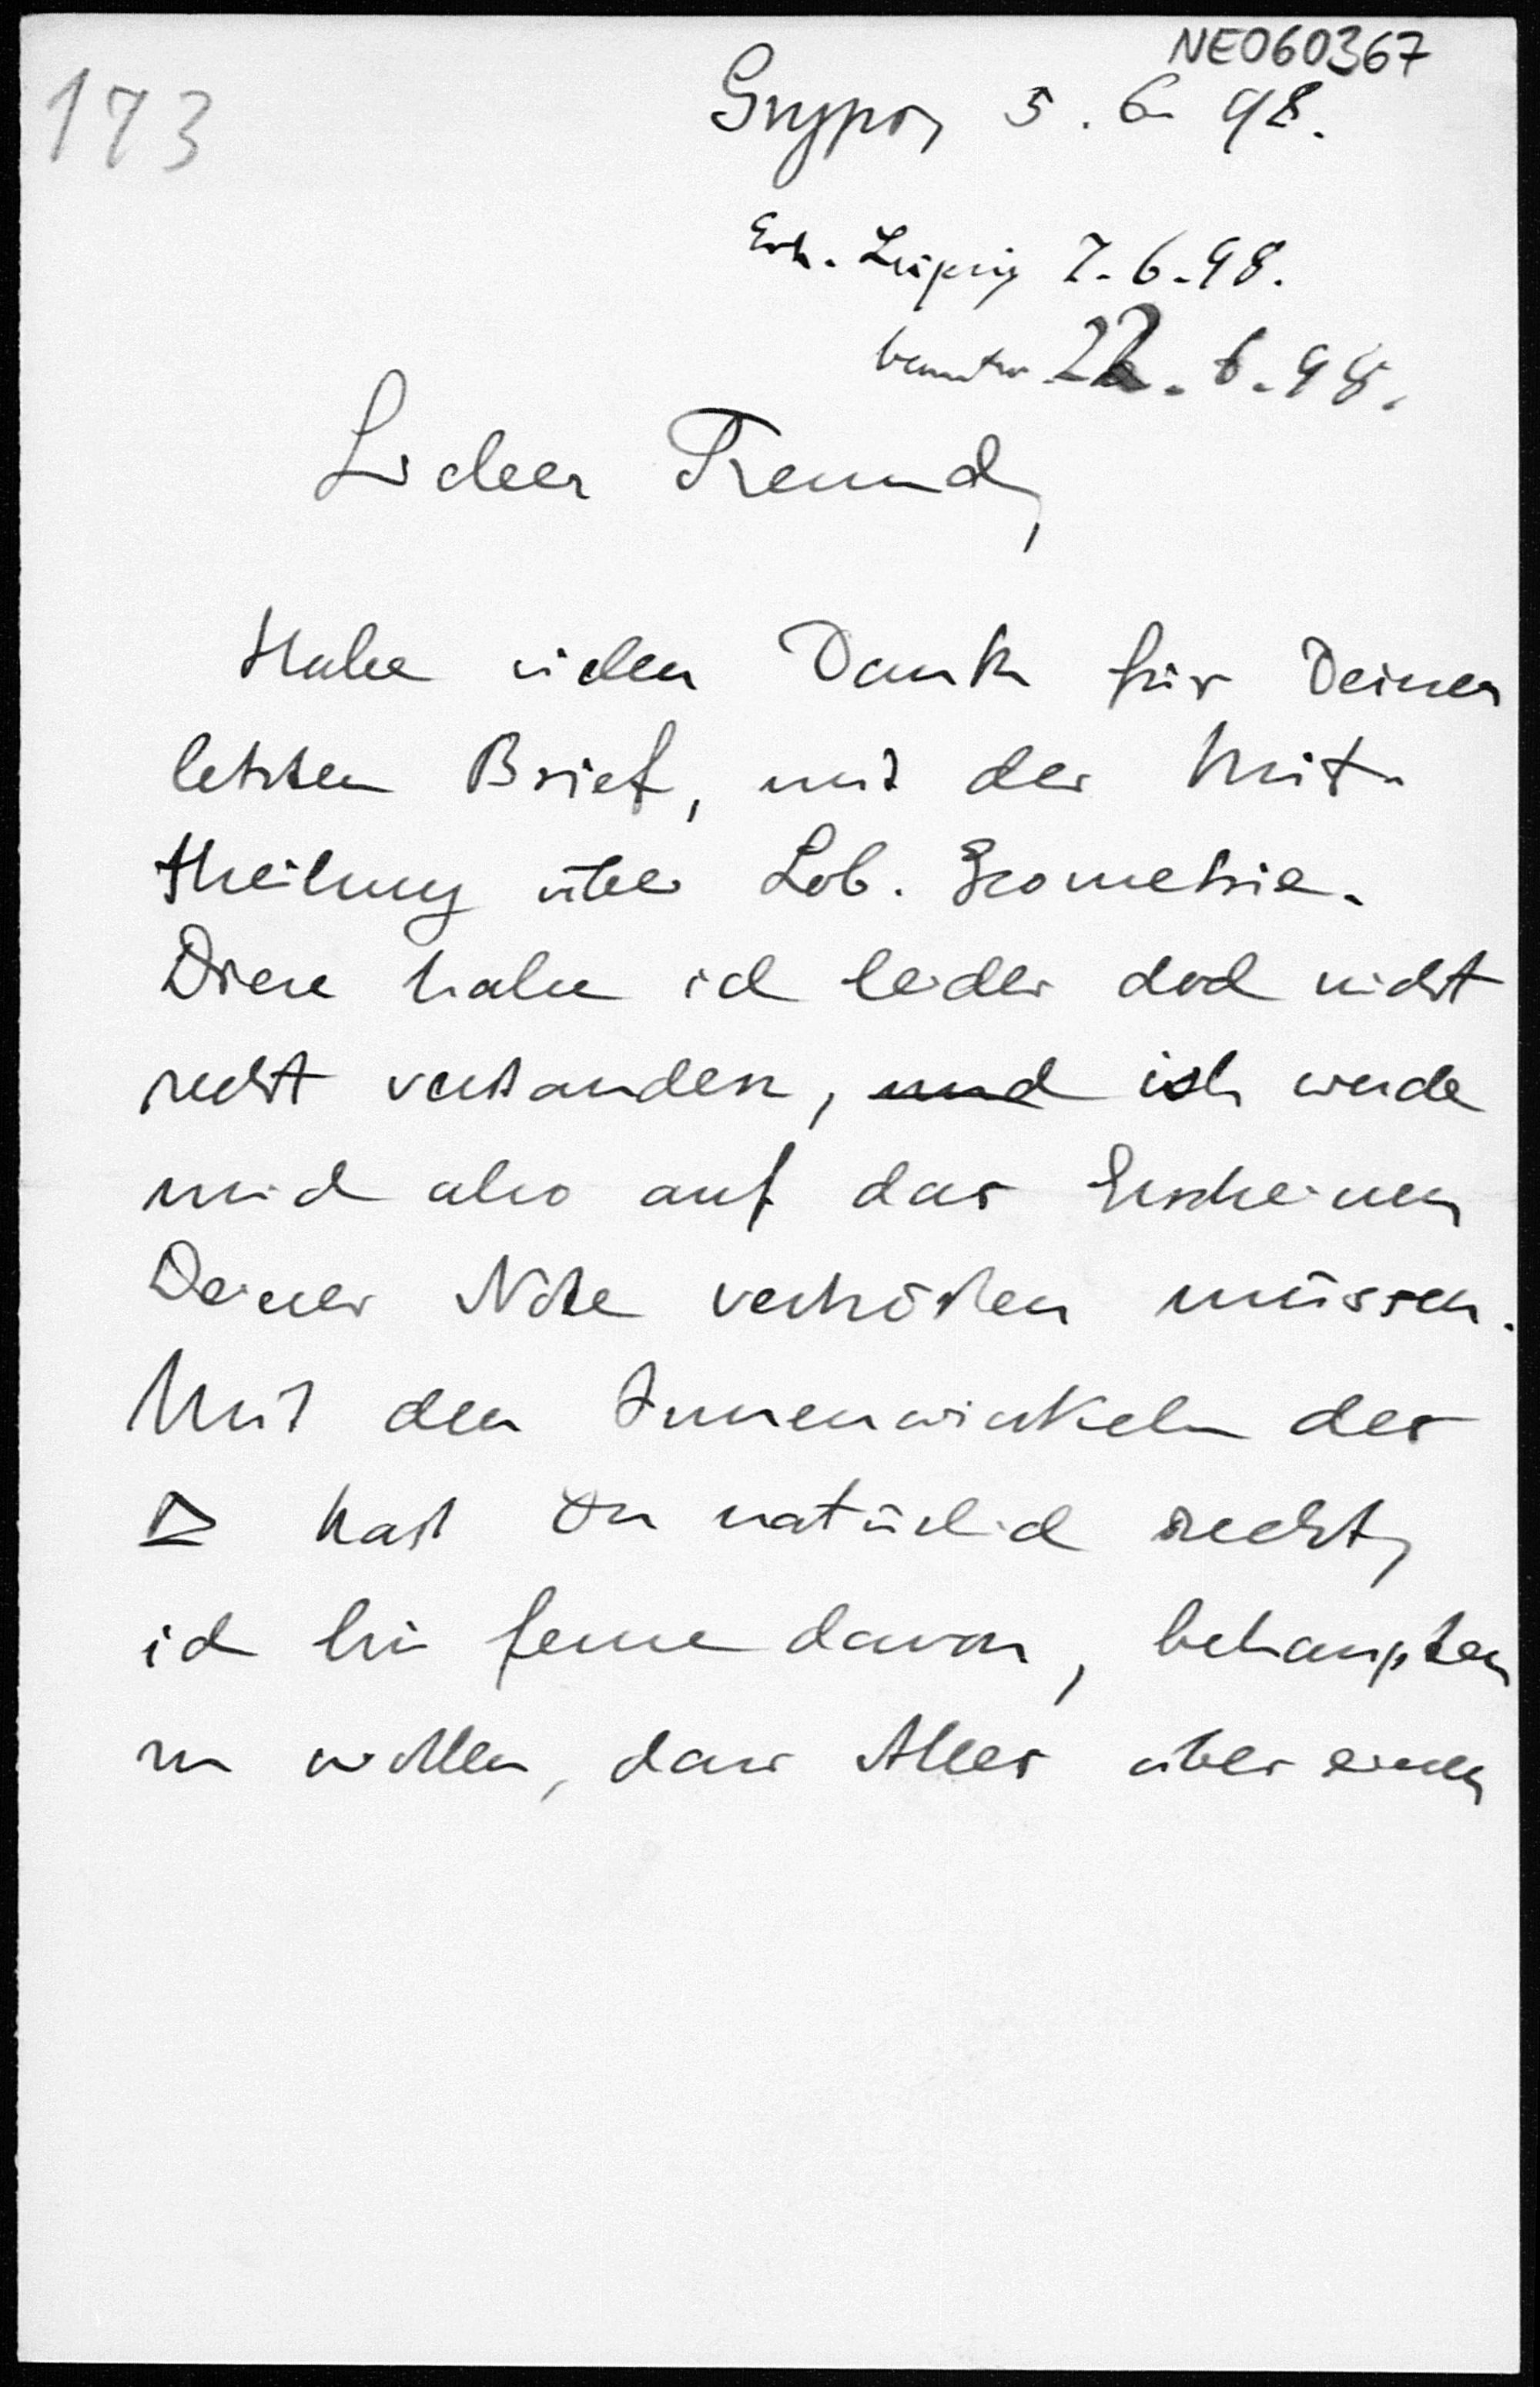 NE060367
173
Gryps, 5. 6. 98.
Erh. Leipzig 7. 6. 98.
beantw 22. 6. 98.
Lieber Freund,
Habe vielen Dank für Deinen
letzten Brief, mit der Mit-
theilung über Lob. Geometrie.
Diese habe ich leider doch nicht
recht verstanden, und ich werde
mich also auf das Erscheinen
Deiner Note vertrösten müssen.
Mit den Innenwinkeln des
△ hast Du natürlich recht,
ich bin ferne davon, behaupten
zu wollen, dass Alles über einen